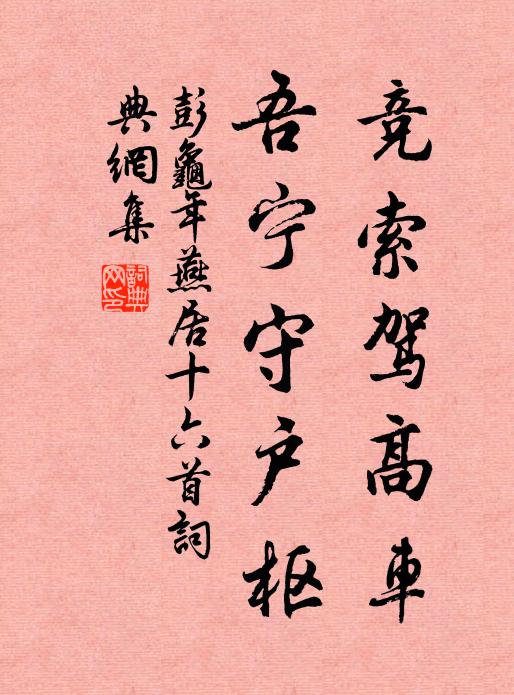 竞索驾高車
吾宁守户枢
彭龜年燕居十六首詞
典網集
詞典网印